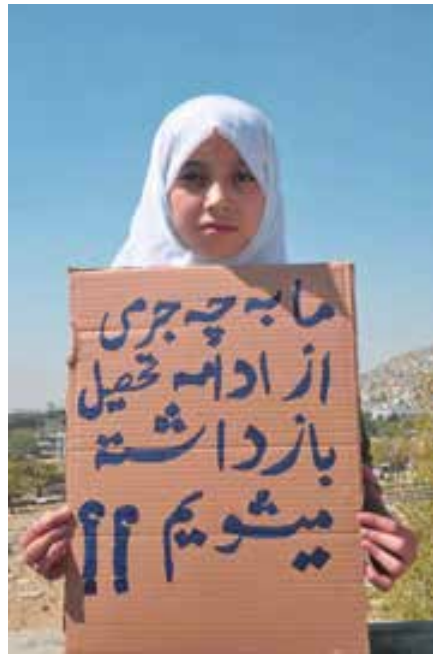 ما به چه جرمی
از ادامه تحصیل
بازداشته
میشویم؟؟